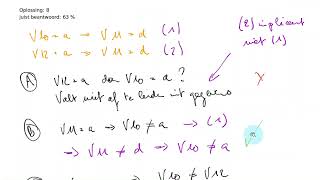 Oplossing: B
Juist beantwoord: 63 %
V10 = a → V11 = d (1)
V12 = a → V11 = d (2)
(2) impliceert niet (1)
Ⓐ V12 = a dan V10 = a ?
Valt niet af te leiden uit gegevens
Ⓑ V11 = a → V10 ≠ a → (1)
→ V11 ≠ d → V10 ≠ a
→ V10 ≠ V12